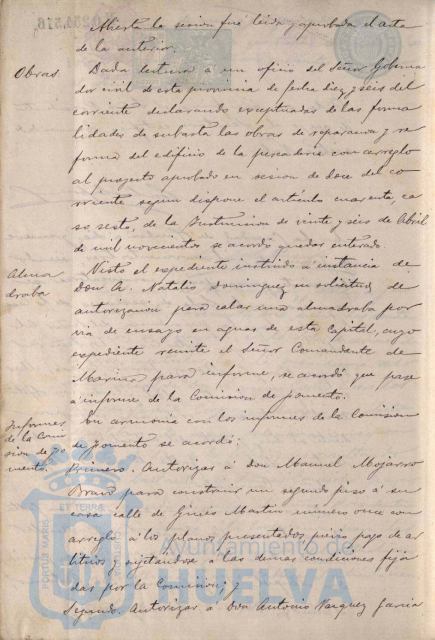 Abierta la sesion fué leida y aprobada el acta
de la anterior.
Obras
Dada lectura á un oficio del Señor Goberna
dor civil de esta provincia de fecha diez y seis del
corriente declarando exceptuadas de las forma
lidades de subasta las obras de reparacion y re
forma del edificio de la pescaderia con arreglo
al proyecto aprobado en sesion de doce del co
rriente segun dispone el artículo cuarenta, ca
so sesto, de la Instruccion de veinte y seis de Abril
de mil novecientos se acordó quedar enterado.
Almadraba
Visto el expediente instruido á instancia de
Don A. Natalio Dominguez en solicitud de
autorizacion para calar una almadraba por
via de ensayo en aguas de esta Capital, cuyo
expediente remite el Señor Comandante de
Marina para informe, se acordó que pase
á informe de la Comision de fomento.
Informes
de la Comi
sion de Fo
mento.
En armonia con los informes de la Comision
de fomento se acordó:
Primero. Autorizar á Don Manuel Mojarro
Bravo para construir un segundo piso á su
casa calle de Ginés Martin número once con
arreglo á los planos presentados, previo pago de ar
bitrios y sujetandose á las demas condiciones fija
das por la Comision; y
Segundo. Autorizar á Don Antonio Vazquez Garcia
PORTUS MARIS
ET TERRAE
CUSTODIA
Ayuntamiento de
HUELVA